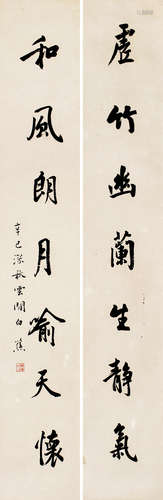 虚竹幽兰生静氣
和風朗月喻天懷
辛巳深秋雲間白蕉